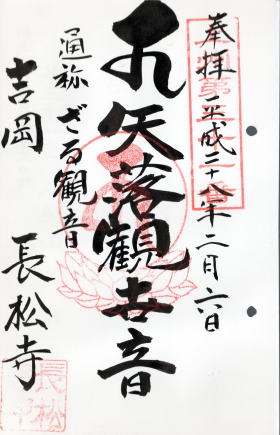 奉拝 平成二十八年二月六日
矢落観世音
通称 ざる観音
吉岡 長松寺
長松